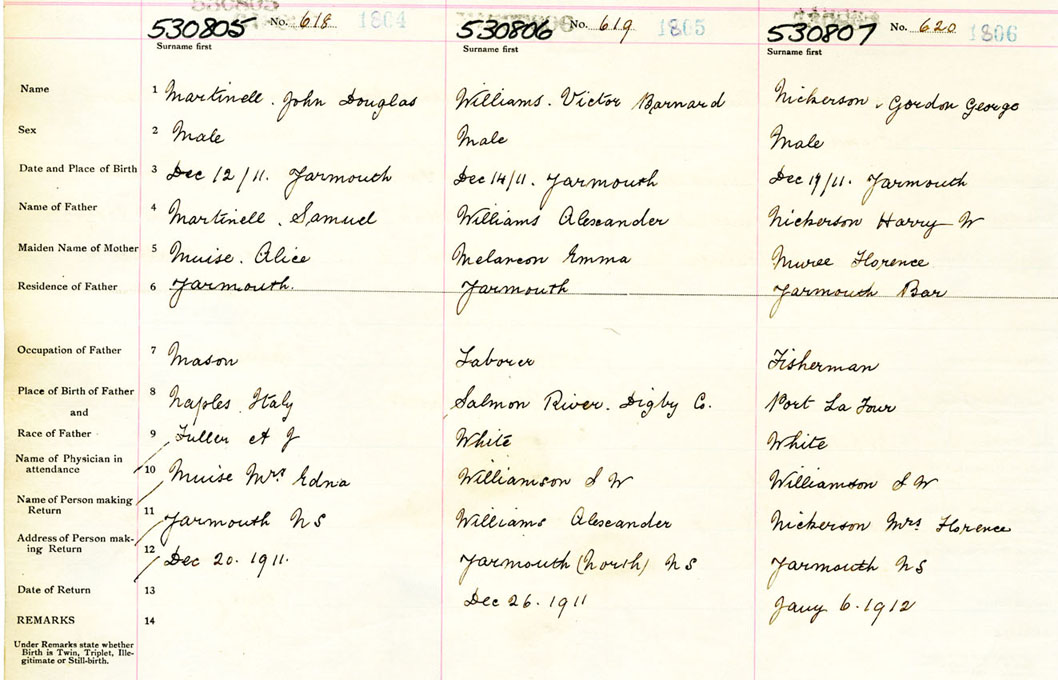 530805 No. 618 1804 530806 No. 619 1805 530807 No. 620 1806
Surname first Surname first Surname first
Name 1 Martinell. John Douglas Williams. Victor Barnard Nickerson, Gordon George
Sex 2 Male Male Male
Date and Place of Birth 3 Dec 12/11. Yarmouth Dec 14/11. Yarmouth Dec 19/11. Yarmouth
Name of Father 4 Martinell. Samuel Williams Alexander Nickerson Harry W
Maiden Name of Mother 5 Muise. Alice Melancon Emma Muree Florence
Residence of Father 6 Yarmouth. Yarmouth Yarmouth Bar
Occupation of Father 7 Mason Laborer Fisherman
Place of Birth of Father 8 Naples Italy Salmon River. Digby Co. Port La Tour
and
Race of Father 9 Fuller A J White White
Name of Physician in
attendance 10 Muise Mrs Edna Williamson S W Williamson S W
Name of Person making
Return 11 Yarmouth NS Williams Alexander Nickerson Mrs Florence
Address of Person mak-
ing Return 12 Dec 20. 1911. Yarmouth (North) NS Yarmouth NS
Date of Return 13 Dec 26. 1911 Jany 6. 1912
REMARKS 14
Under Remarks state whether
Birth is Twin, Triplet, Ille-
gitimate or Still-birth.